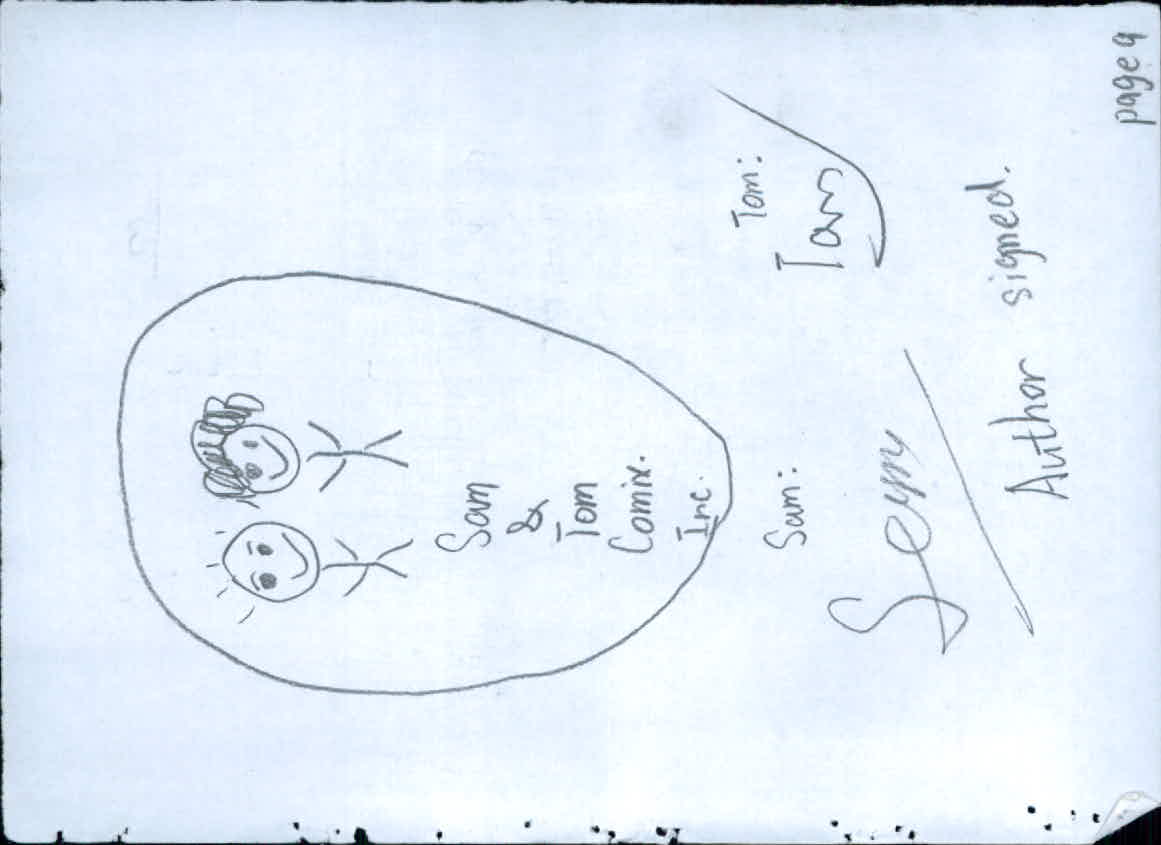 Sam
&
Tom
Comix.
Inc.
Sam:
Tom:
Sam
Tom
Author signed.
page 9